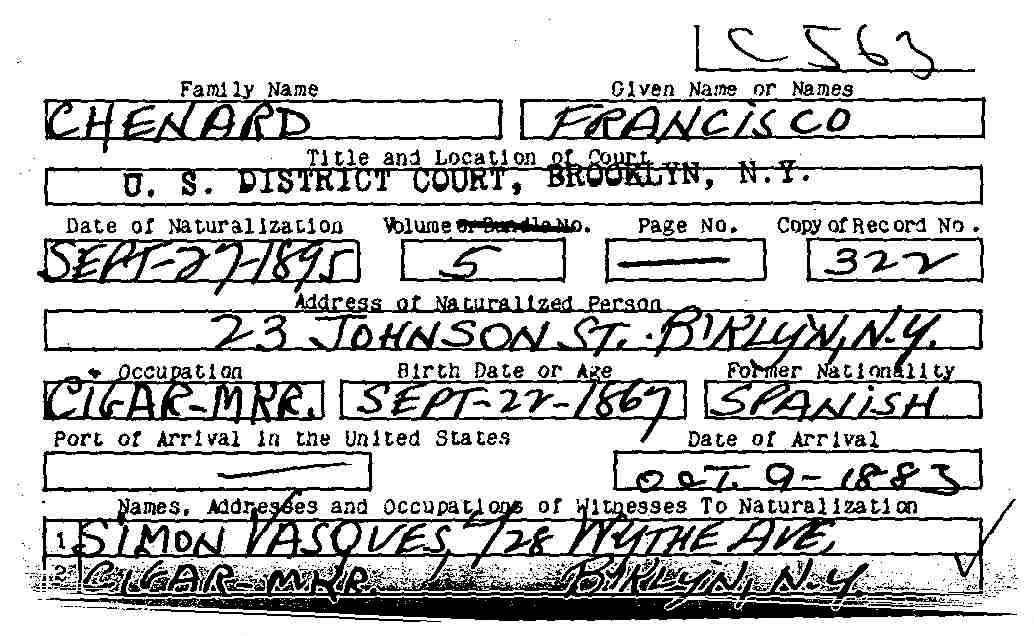 C 563
Family Name Given Name or Names
CHENARD FRANCISCO
Title and Location of Court
U. S. DISTRICT COURT, BROOKLYN, N.Y.
Date of Naturalization Volume or Bundle No. Page No. Copy of Record No.
SEPT-27-1895 5 — 322
Address of Naturalized Person
23 JOHNSON ST. B'KLYN, N.Y.
Occupation Birth Date or Age Former Nationality
CIGAR-MKR. SEPT-22-1867 SPANISH
Port of Arrival in the United States Date of Arrival
— OCT. 9-1883
Names, Addresses and Occupations of Witnesses To Naturalization
1. SIMON VASQUES, 428 WYTHE AVE,
2 CIGAR-MKR. B'KLYN, N.Y.